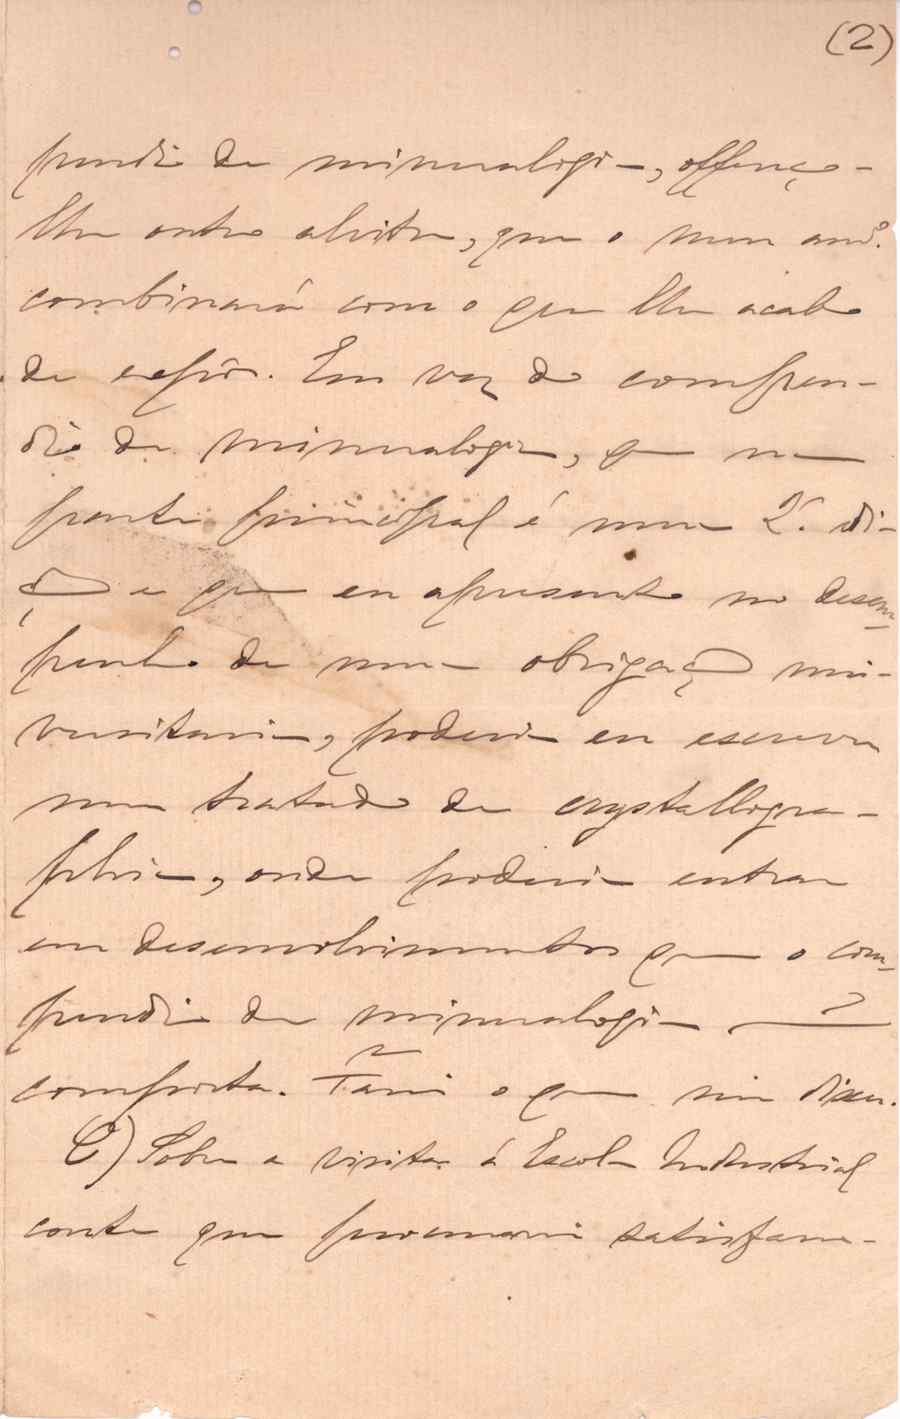 (2)
pendio de mineralogia, offereço-
lhe outro alvitre, que o meu am.º
combinará com o que lhe acabo
de expôr. Em vez do compen-
dio de mineralogia, que na
parte principal é uma 2.ª edi-
ção e que eu apresento no desem-
penho de uma obrigação uni-
versitaria, poderia eu escrever
um tratado de crystallogra-
phia, onde poderia entrar
em desenvolvimentos que o com-
pendio de mineralogia não
comporta. Fará o que me disser.
C) Sobre a visita á Escola Industrial
conte que procurarei satisfaze-